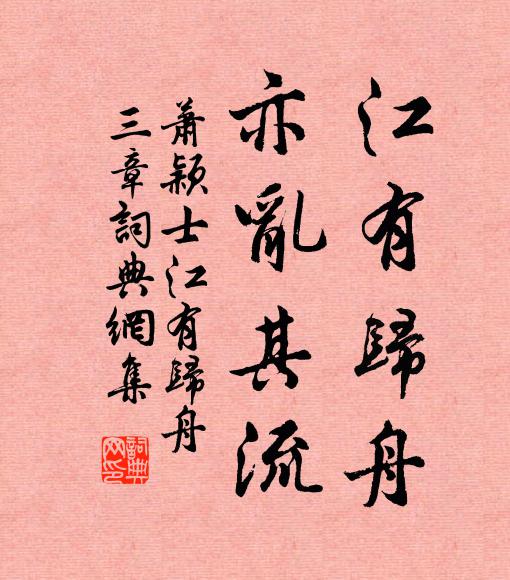 江有歸舟
亦亂其流
蕭潁士江有歸舟
三章詞典網集
詞典網印